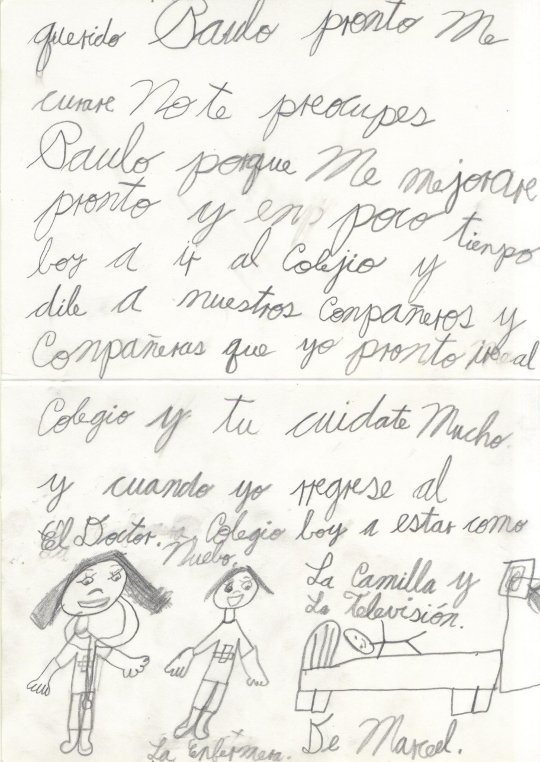 querido Paulo pronto Me
curare No te preocupes
Paulo porque Me mejorare
pronto y en poco tienpo
boy a ir al Colejio y
dile a nuestros Conpañeros y
Conpañeras que yo pronto ire al
Colegio y tu cuidate Mucho.
y cuando yo regrese al
Colegio boy a estar como
Nuebo.
El Doctor.
La Camilla y
La Televisión.
La Enfermera.
De Marcel.